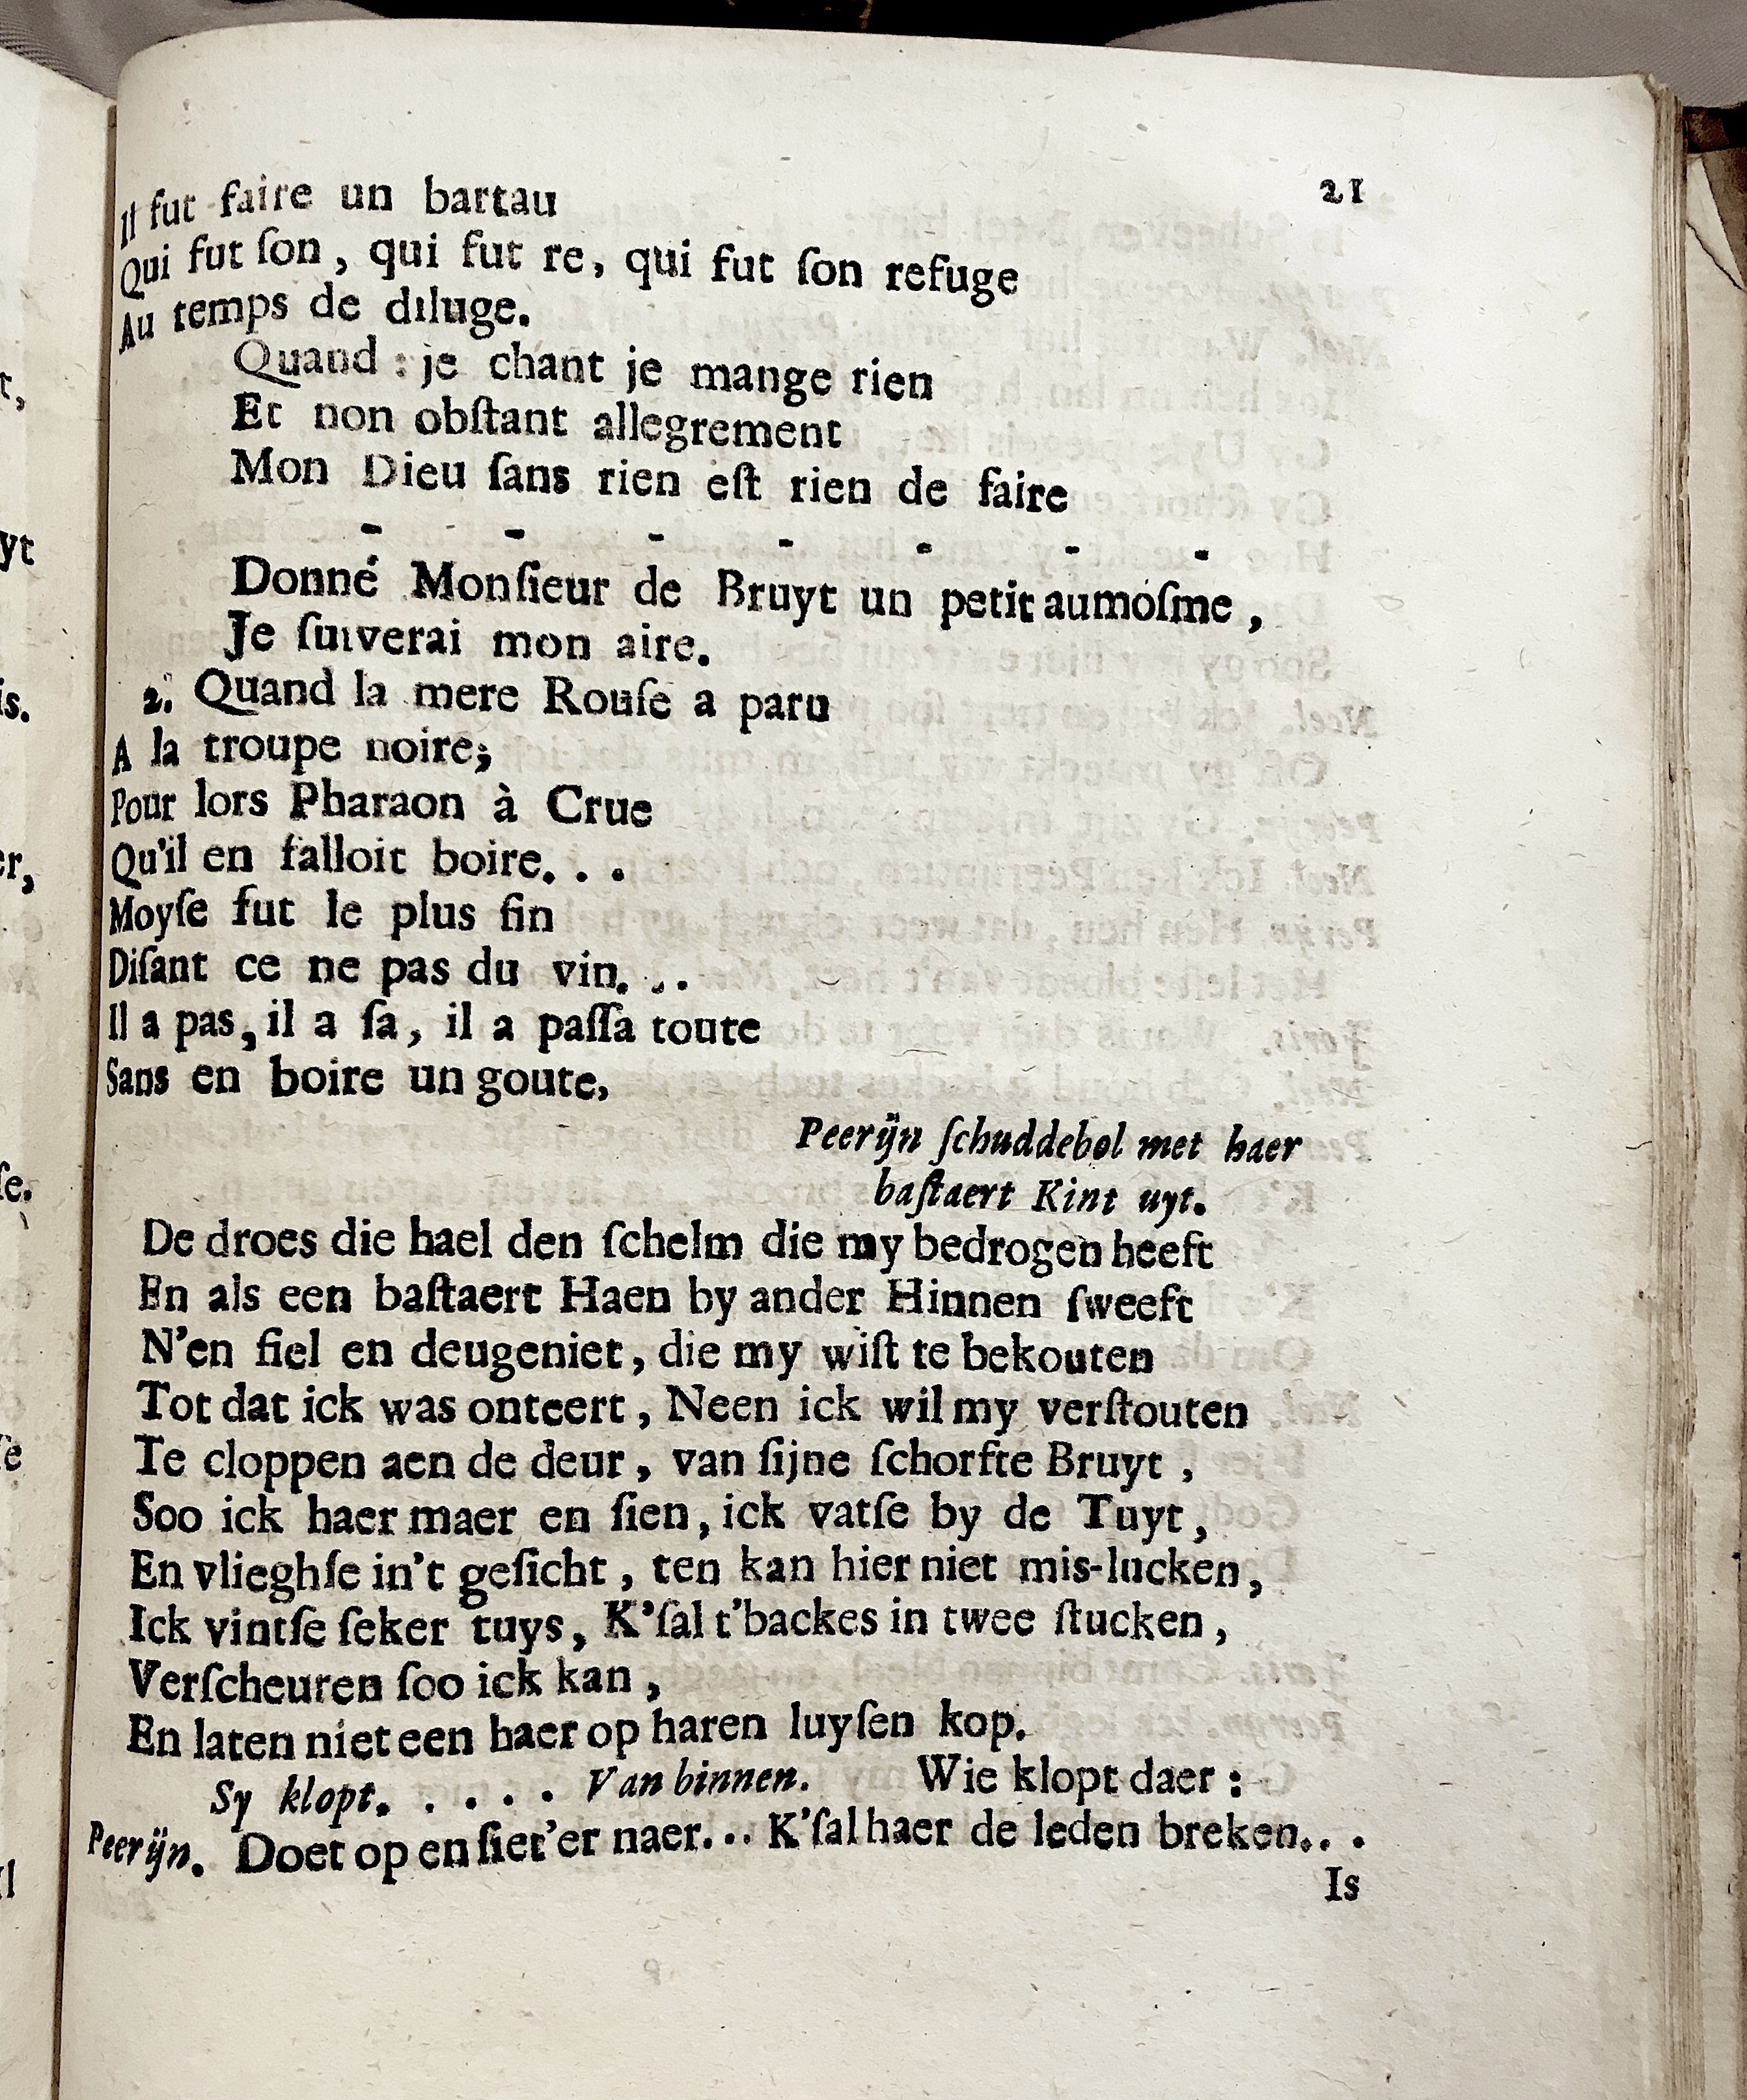 21
Il fut faire un bartau
Qui fut ſon, qui fut re, qui fut ſon refuge
Au temps de diluge.
Quand : je chant je mange rien
Et non obſtant allegrement
Mon Dieu ſans rien eſt rien de faire
- - - - - - -
Donné Monſieur de Bruyt un petit aumoſme,
Je ſuiverai mon aire.
2. Quand la mere Rouſe a paru
A la troupe noire;
Pour lors Pharaon à Crue
Qu'il en falloit boire. . .
Moyſe fut le plus fin
Diſant ce ne pas du vin. . .
Il a pas, il a ſa, il a paſſa toute
Sans en boire un goute,
Peerijn ſchuddebol met haer
baſtaert Kint uyt.
De droes die hael den ſchelm die my bedrogen heeft
En als een baſtaert Haen by ander Hinnen ſweeft
N'en fiel en deugeniet, die my wiſt te bekouten
Tot dat ick was onteert, Neen ick wil my verſtouten
Te cloppen aen de deur, van ſijne ſchorfte Bruyt,
Soo ick haer maer en ſien, ick vatſe by de Tuyt,
En vlieghſe in't geſicht, ten kan hier niet mis-lucken,
Ick vintſe ſeker tuys, K'ſal t'backes in twee ſtucken,
Verſcheuren ſoo ick kan,
En laten niet een haer op haren luyſen kop.
Sy klopt. . . . . Van binnen. Wie klopt daer :
Peerijn. Doet op en ſiet'er naer... K'ſal haer de leden breken. . .
Is